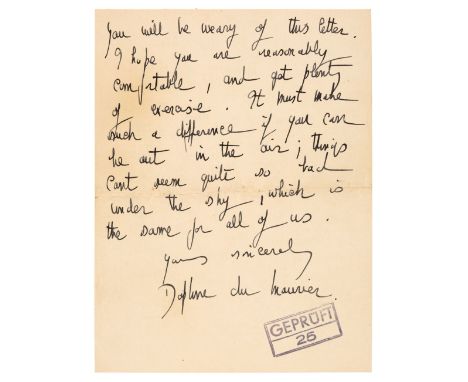 You will be weary of this letter.
I hope you are reasonably
comfortable, and get plenty
of exercise. It must make
such a difference if you can
be out in the air; things
cant seem quite so bad
under the sky, which is
the same for all of us.
Yours sincerely
Daphne du Maurier.
GEPRÜFT
25